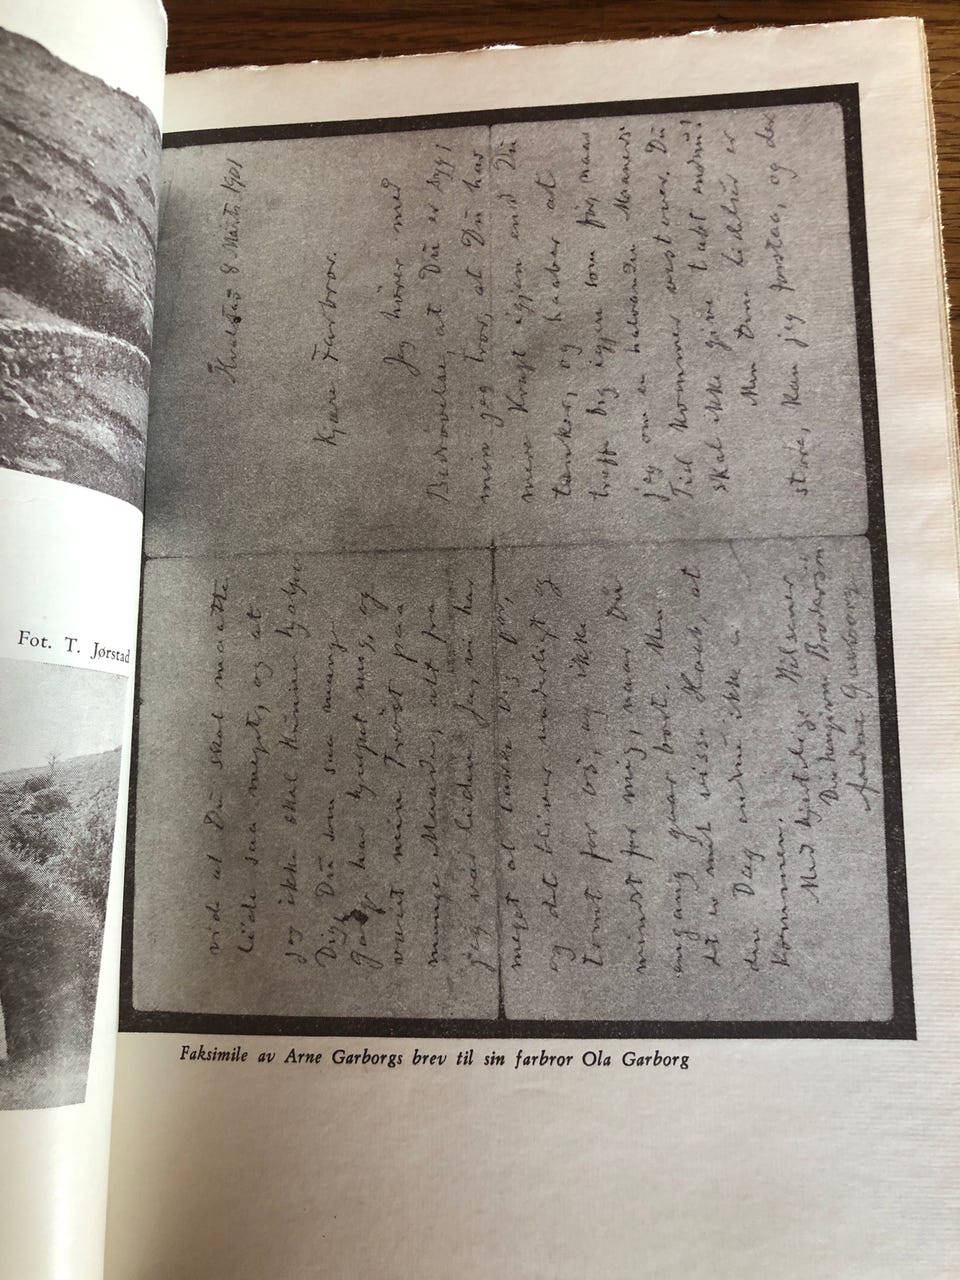 Fot. T. Jørstad
Hvalstad 8 Marts 1901
Kjære Farbror.
Jeg hører med
Bedrøvelse, at Du er syg;
men jeg tror, at Du har
mere Kraft igjen end Du
tænker, og haaber at
treffe Dig igjen som før, naar
jeg om en halvanden Maaneds
Tid kommer vestover. Du
skal ikke give tabt endnu!
Men Dine Lidelser er
store, kan jeg forstaa, og det
vide at Du skal maatte
lide saa meget, og at
jeg ikke skal kunne hjælpe
Dig, Du som saa mange
Gang har hjulpet mig, og
været min Trøst paa
mange Maader, alt fra
jeg var liden. Ja, vi har
meget at takke Dig for,
og det bliver underligt og
tomt for os, og ikke
mindst for mig, naar Du
engang gaar bort. Men
det er mit visse Haab, at
den Dag endnu ikke er
kommen.
Med hjertelige Hilsener
Din hengivne Brodersøn
Garborg
Faksimile av Arne Garborgs brev til sin farbror Ola Garborg